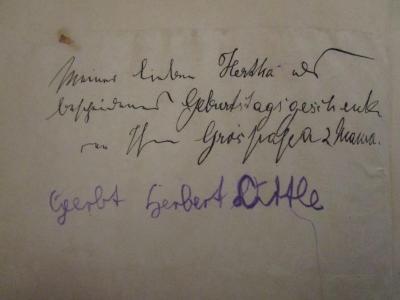 Meiner lieben Hertha als
bescheidenes Geburtstagsgeschenk
von Ihrem Grosspapa & Mama.
Geerbt Herbert Little